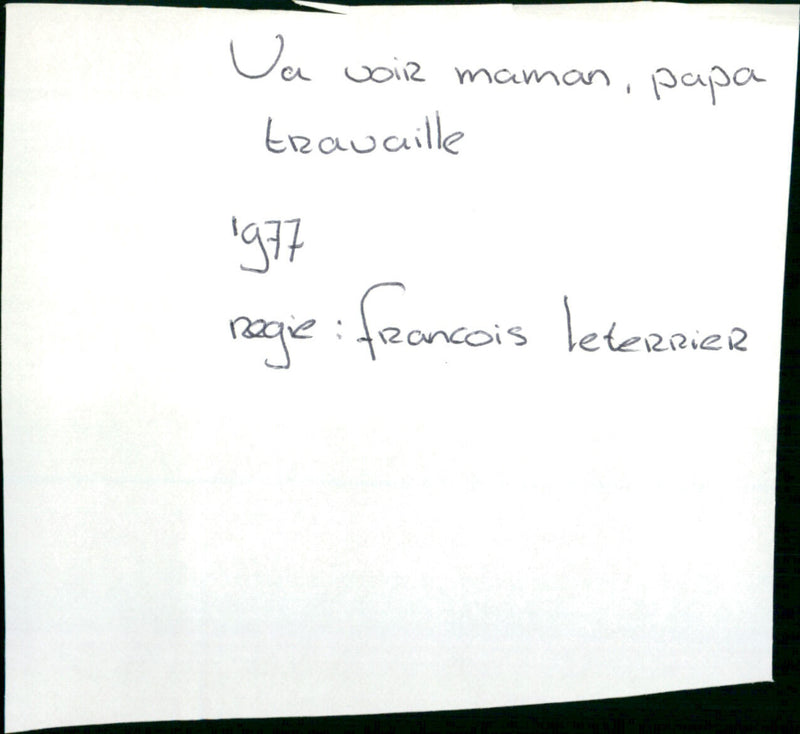 Va voir maman, papa
travaille
1977
regie: francois leterrier